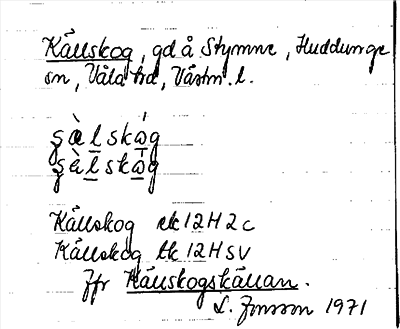 Källskog, gd å Stymne, Huddunge
sn, Våla hd, Västm. l.
ʂàlskóg
ʂàlskòg
Källskog ek 12H2c
Källskog tk 12HSV
Jfr Källskogskällan.
L. Jonsson 1971